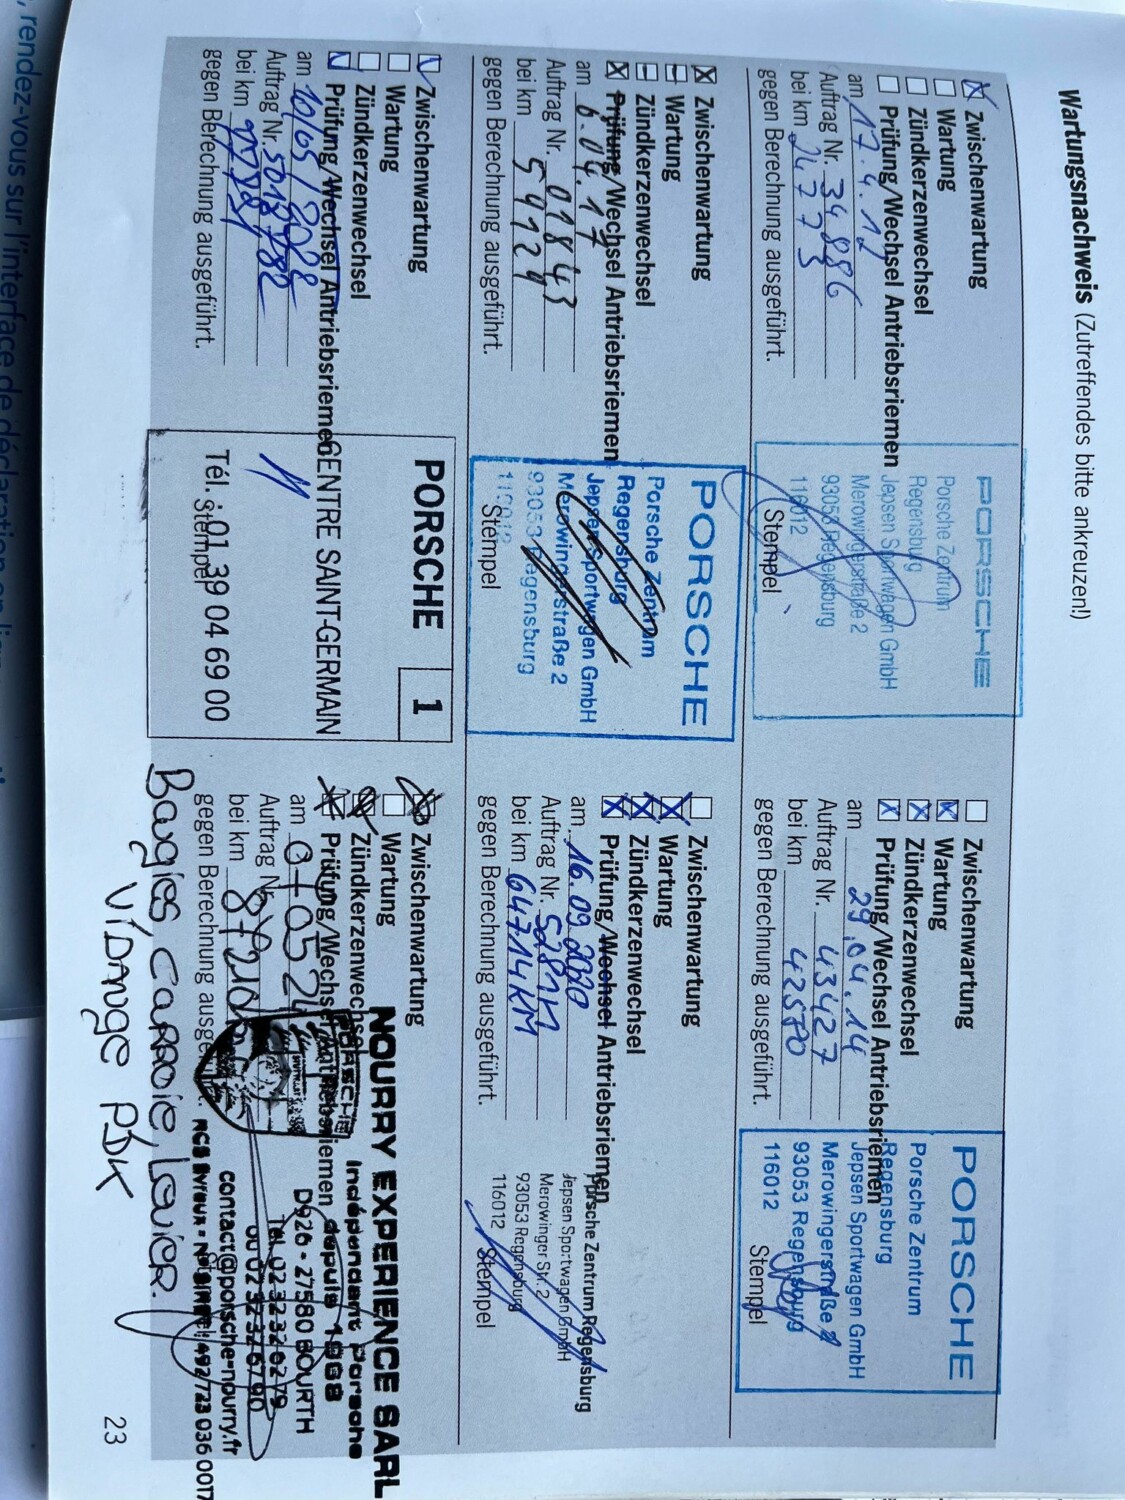 Wartungsnachweis (Zutreffendes bitte ankreuzen!)
Zwischenwartung
Wartung
Zündkerzenwechsel
Prüfung/Wechsel Antriebsriemen
am 17.4.12
Auftrag Nr. 34886
bei km 24773
gegen Berechnung ausgeführt.
PORSCHE
Porsche Zentrum
Regensburg
Jepsen Sportwagen GmbH
Merowingerstraße 2
93053 Regensburg
116012
Stempel
Zwischenwartung
Wartung
Zündkerzenwechsel
Prüfung/Wechsel Antriebsriemen
am 29.04.14
Auftrag Nr. 43427
bei km 42570
gegen Berechnung ausgeführt.
PORSCHE
Porsche Zentrum
Regensburg
Jepsen Sportwagen GmbH
Merowingerstraße 2
93053 Regensburg
116012
Stempel
Zwischenwartung
Wartung
Zündkerzenwechsel
Prüfung/Wechsel Antriebsriemen
am 6.04.17
Auftrag Nr. 01843
bei km 54129
gegen Berechnung ausgeführt.
PORSCHE
Porsche Zentrum
Regensburg
Jepsen Sportwagen GmbH
Merowingerstraße 2
93053 Regensburg
116012
Stempel
Zwischenwartung
Wartung
Zündkerzenwechsel
Prüfung/Wechsel Antriebsriemen
am 16.09.2020
Auftrag Nr.
bei km 64714 KM
gegen Berechnung ausgeführt.
Porsche Zentrum Regensburg
Jepsen Sportwagen GmbH
Merowinger Str. 2
93053 Regensburg
116012
Stempel
Zwischenwartung
Wartung
Zündkerzenwechsel
Prüfung/Wechsel Antriebsriemen
am
Auftrag Nr.
bei km
gegen Berechnung ausgeführt.
PORSCHE 1
CENTRE SAINT-GERMAIN
Tél. : 01 39 04 69 00
Stempel
Zwischenwartung
Wartung
Zündkerzenwechsel
Prüfung/Wechsel Antriebsriemen
am
Auftrag Nr.
bei km
gegen Berechnung
NOURRY EXPERIENCE SARL
PORSCHE
Indépendant Porsche
depuis 1988
D926 - 27580 BOURTH
Tél. 02 32 32 62 79
ou 02 32 37 67 90
contact@porsche-nourry.fr
Bougies, Courroie,
Vidange PDK
23
, rendez-vous sur l'interface de déclaration en